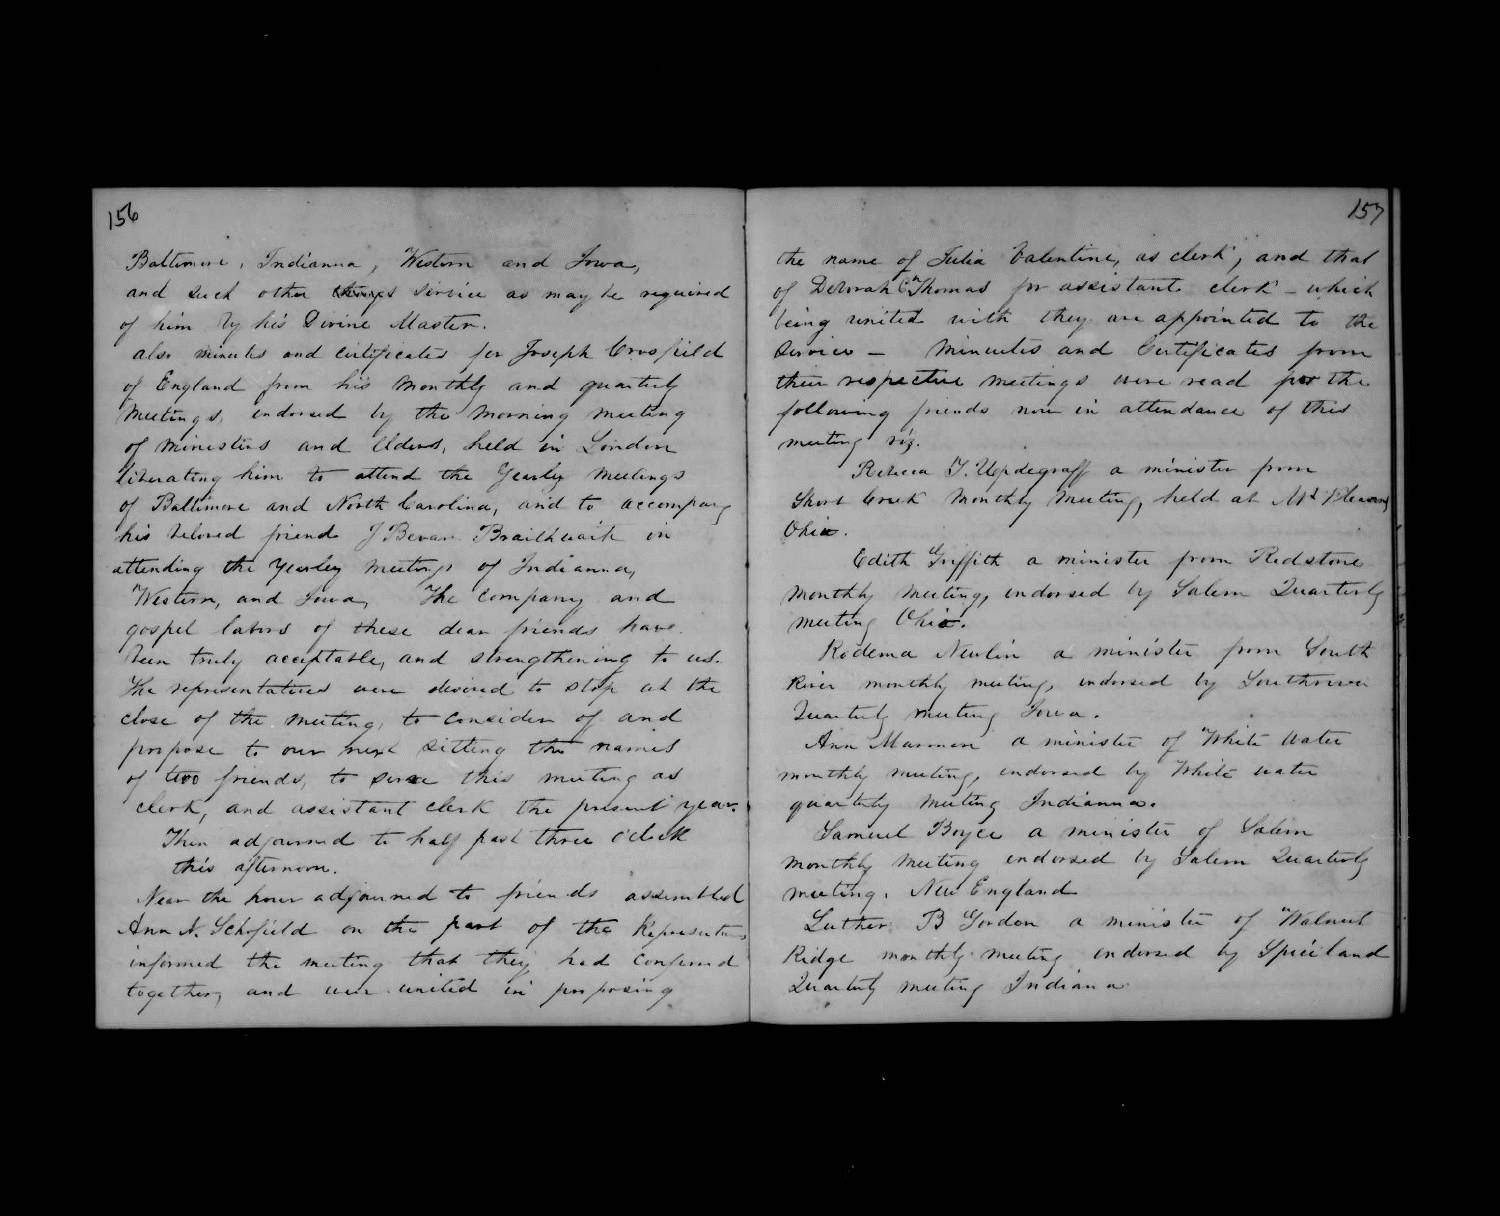 156
Baltimore, Indianna, Western and Iowa,
and such other service as may be required
of him by his Divine Master.
also minutes and certificates for Joseph Crosfield
of England from his monthly and quarterly
meetings, indorsed by the morning meeting
of ministers and Elders, held in London
liberating him to attend the Yearly meetings
of Baltimore and North Carolina, and to accompany
his beloved friend J Bevan Braithwaite in
attending the Yearley meetings of Indianna,
Western, and Iowa, The company and
gospel labors of these dear friends have
been truly acceptable, and strengthening to us.
The representatives were desired to stop at the
close of the meeting, to consider of and
propose to our next sitting the names
of two friends, to serve this meeting as
clerk, and assistant clerk the present year.
Then adjourned to half past three o'clock
this afternoon.
Near the hour adjourned to friends assembled
Ann N. Schofield on the part of the
informed the meeting that they had conferred
together, and were united in proposing
157
the name of Julia Valentine, as clerk; and that
of Deborah C Thomas for assistant clerk - which
being united with they are appointed to the
service - Minutes and Certificates from
their respective meetings were read for the
following friends now in attendance of this
meeting viz.
Rebecca T. Updegraff a minister from
Short Creek Monthly Meeting, held at Mt Pleasant
Ohio.
Edith Griffith a minister from Redstone
monthly meeting, indorsed by Salem Quarterly
meeting Ohio.
Rodema Newlin a minister from South
River monthly meeting, indorsed by
Quarterly meeting Iowa.
Ann Marmon a minister of White water
monthly meeting, endorsed by White water
quarterly meeting Indianna.
Samuel Boyce a minister of Salem
monthly meeting endorsed by Salem Quarterly
meeting. New England
Luther B Gordon a minister of Walnut
Ridge monthly meeting endorsed by Spiceland
Quarterly meeting Indiana